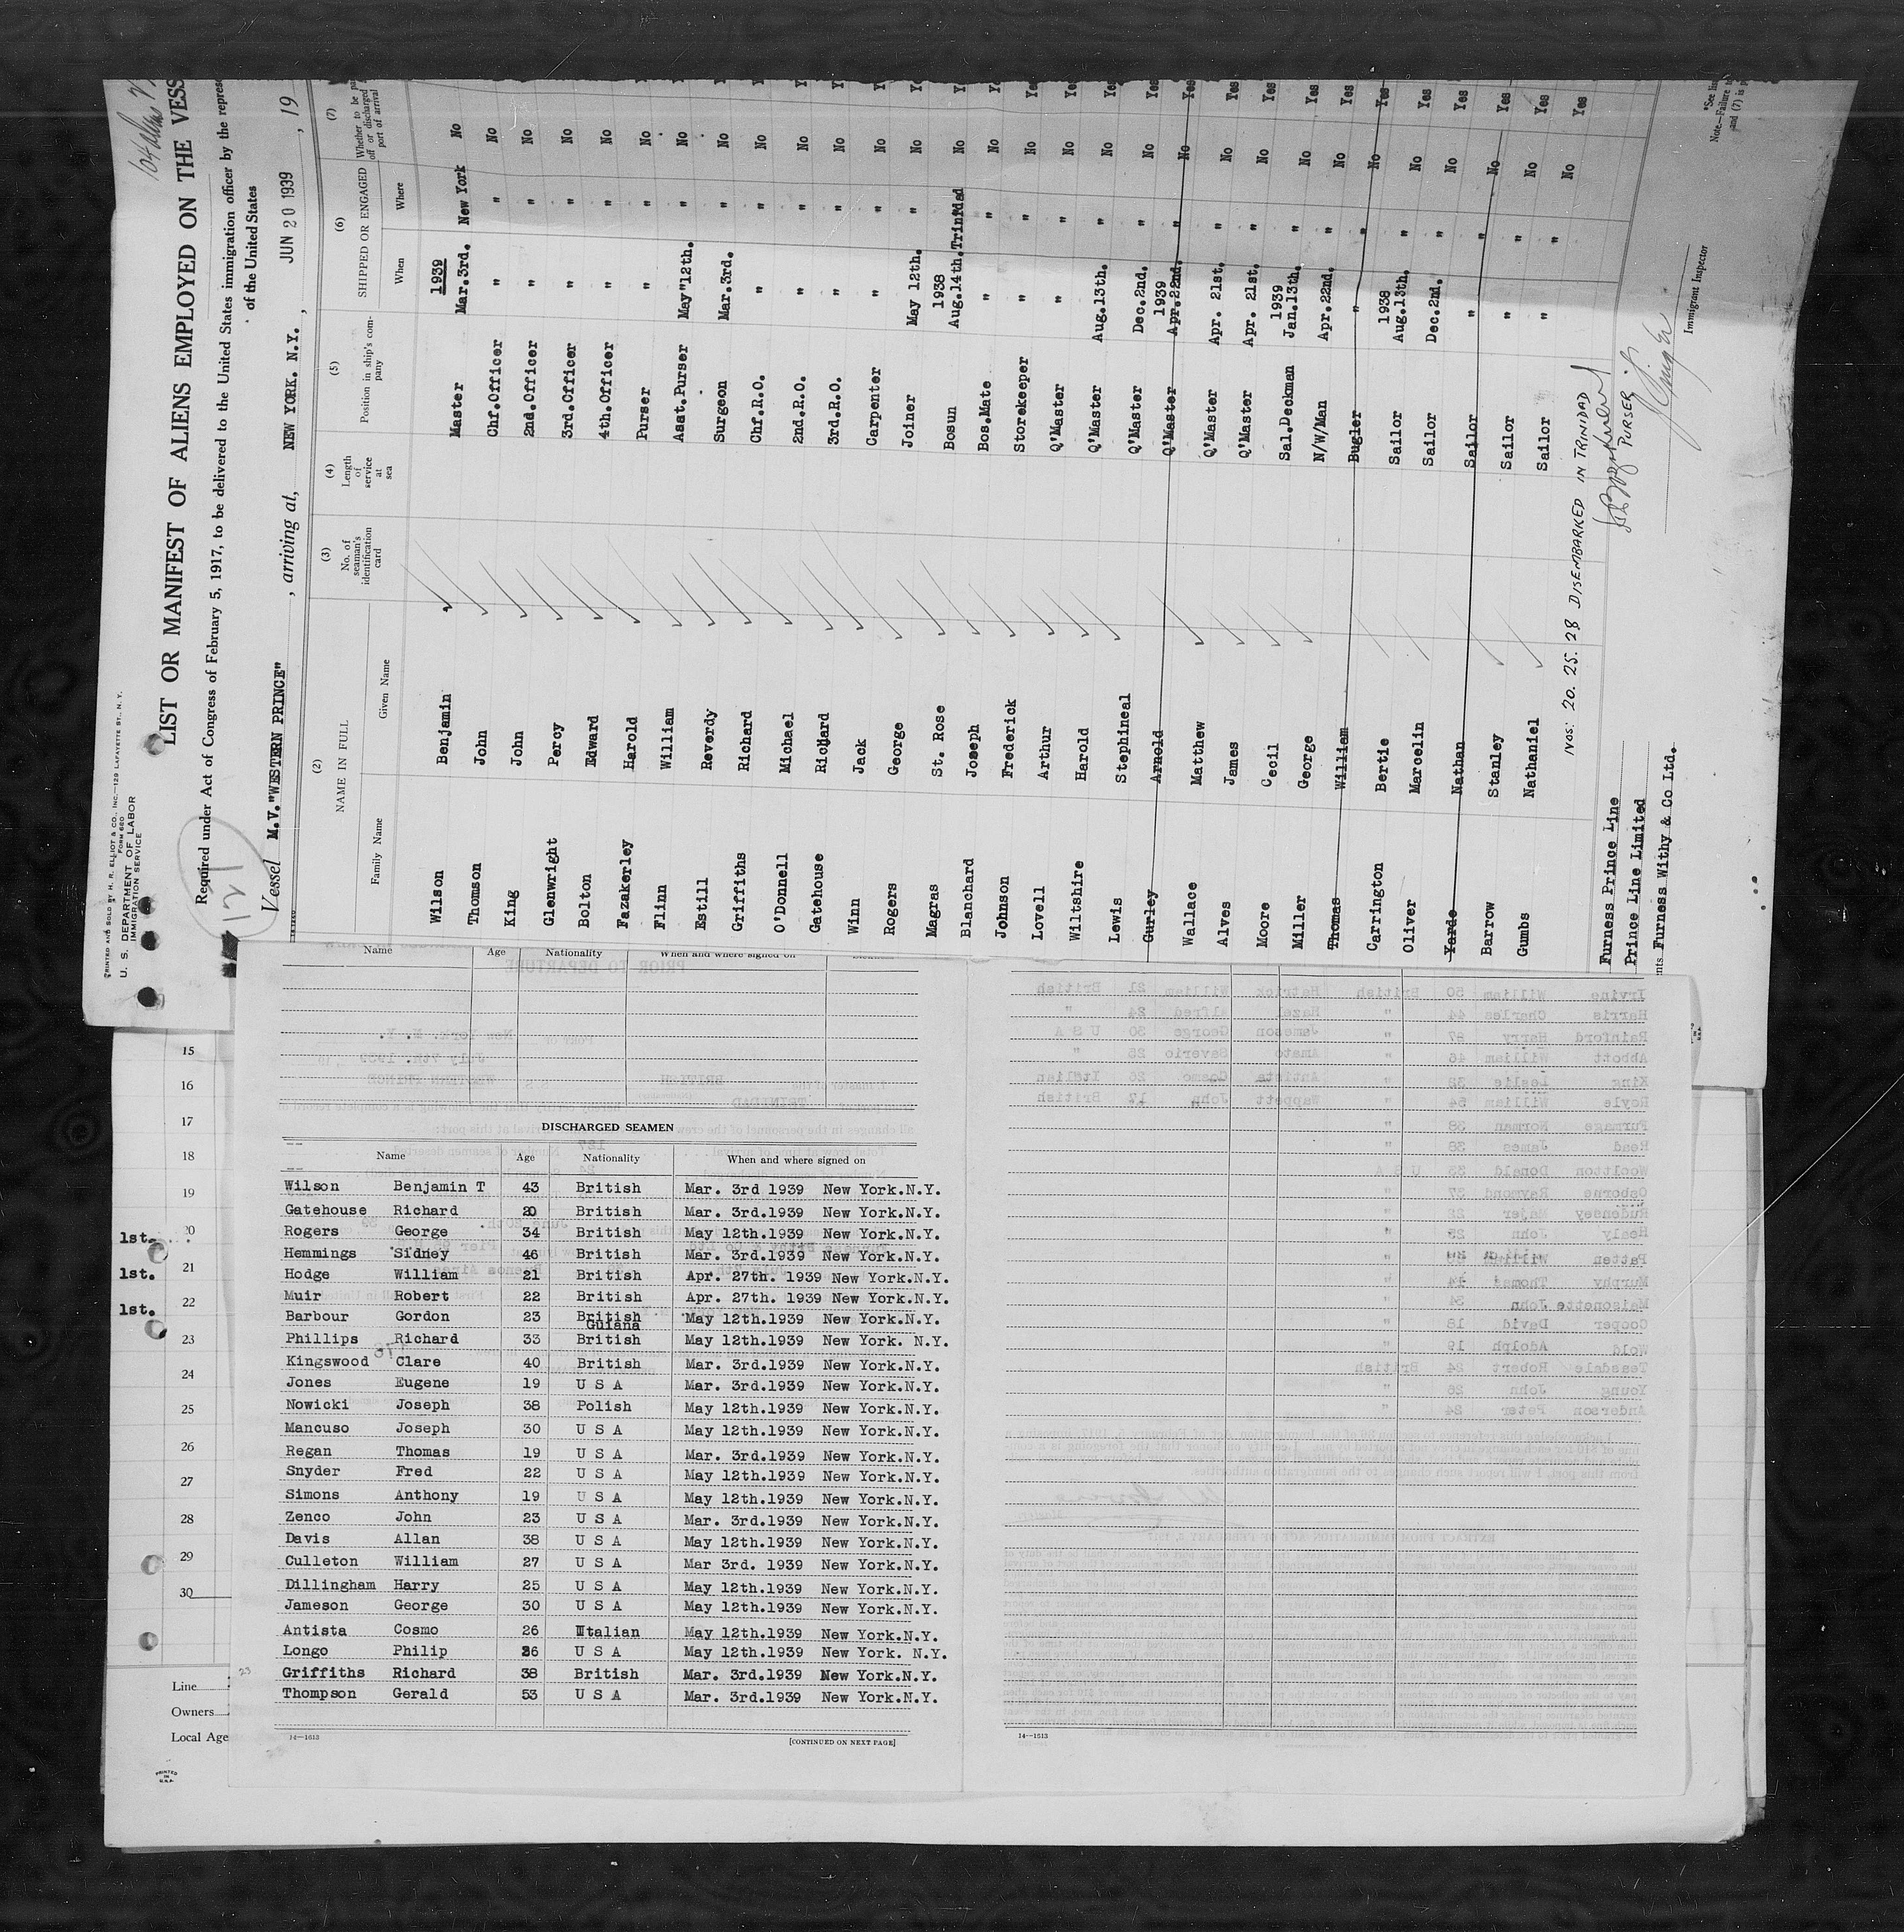 PRINTED AND SOLD BY H. R. ELLIOT & CO., INC.—129 LAFAYETTE ST., N. Y.
FORM 680
U. S. DEPARTMENT OF LABOR
IMMIGRATION SERVICE
127
LIST OR MANIFEST OF ALIENS EMPLOYED ON THE VESS
Required under Act of Congress of February 5, 1917, to be delivered to the United States immigration officer by the repres
of the United States
Vessel M.V."WESTERN PRINCE", arriving at, NEW YORK. N.Y., JUN 20 1939, 19
(2) (3) (4) (5) (6) (7)
NAME IN FULL No. of seaman's identification card Length of service at sea Position in ship's company SHIPPED OR ENGAGED Whether to be off or discharged port of arrival
Family Name Given Name When Where
1939
Wilson Benjamin Master Mar.3rd. New York No
Thomson John Chf.Officer " " No
King John 2nd.Officer " " No
Glenwright Percy 3rd.Officer " " No
Bolton Edward 4th.Officer " " No
Fazakerley Harold Purser " " No
Flinn William Asst.Purser May"12th. " No
Estill Reverdy Surgeon Mar.3rd. " No
Griffiths Richard Chf.R.O. " " No
O'Donnell Michael 2nd.R.O. " " No
Gatehouse Richard 3rd.R.O. " " No
Winn Jack Carpenter " " No
Rogers George Joiner May 12th. " No
1938
Magras St. Rose Bosun Aug.14th.Trinidad No
Blanchard Joseph Bos.Mate " " No
Johnson Frederick Storekeeper " " No
Lovell Arthur Q'Master " " No
Wiltshire Harold Q'Master Aug.13th. " No
Lewis Stephineal Q'Master Dec.2nd. " No Yes
1939
Gurley Arnold Q'Master Apr.22nd. " No Yes
Wallace Matthew Q'Master Apr. 21st. " No Yes
Alves James Q'Master Apr. 21st. " No Yes
1939
Moore Cecil Sal.Deckman Jan.13th. " No Yes
Miller George N/W/Man Apr.22nd. " No Yes
Thomas William Bugler " " No Yes
1938
Carrington Bertie Sailor Aug.13th. " No Yes
Oliver Marcelin Sailor Dec.2nd. " No Yes
Yarde Nathan Sailor " " No Yes
Barrow Stanley Sailor " " No Yes
Gumbs Nathaniel Sailor " " No Yes
Nos: 20. 25. 28 DISEMBARKED IN TRINIDAD
PURSER
Furness Prince Line
Prince Line Limited
nts Furness Withy & Co Ltd.
Immigrant Inspector
*See
Note.—Failure
and (7) is
15
16
17
18
19
1st. 20
1st. 21
1st. 22
23
24
25
26
27
28
29
30
Line
Owners
Local Age
PRINTED IN U.S.A.
Name Age Nationality When and where signed on
DISCHARGED SEAMEN
Name Age Nationality When and where signed on
Wilson Benjamin T 43 British Mar. 3rd 1939 New York.N.Y.
Gatehouse Richard 20 British Mar. 3rd.1939 New York.N.Y.
Rogers George 34 British May 12th.1939 New York.N.Y.
Hemmings Sidney 46 British Mar. 3rd.1939 New York.N.Y.
Hodge William 21 British Apr. 27th. 1939 New York.N.Y.
Muir Robert 22 British Apr. 27th. 1939 New York.N.Y.
Barbour Gordon 23 British Guiana May 12th.1939 New York.N.Y.
Phillips Richard 33 British May 12th.1939 New York. N.Y.
Kingswood Clare 40 British Mar. 3rd.1939 New York.N.Y.
Jones Eugene 19 U S A Mar. 3rd.1939 New York.N.Y.
Nowicki Joseph 38 Polish May 12th.1939 New York.N.Y.
Mancuso Joseph 30 U S A May 12th.1939 New York.N.Y.
Regan Thomas 19 U S A Mar. 3rd.1939 New York.N.Y.
Snyder Fred 22 U S A May 12th.1939 New York.N.Y.
Simons Anthony 19 U S A May 12th.1939 New York.N.Y.
Zenco John 23 U S A Mar. 3rd.1939 New York.N.Y.
Davis Allan 38 U S A May 12th.1939 New York.N.Y.
Culleton William 27 U S A Mar 3rd. 1939 New York.N.Y.
Dillingham Harry 25 U S A May 12th.1939 New York.N.Y.
Jameson George 30 U S A May 12th.1939 New York.N.Y.
Antista Cosmo 26 Italian May 12th.1939 New York.N.Y.
Longo Philip 26 U S A May 12th.1939 New York. N.Y.
23 Griffiths Richard 38 British Mar. 3rd.1939 New York.N.Y.
Thompson Gerald 53 U S A Mar. 3rd.1939 New York.N.Y.
14—1613 [CONTINUED ON NEXT PAGE]
14—1613